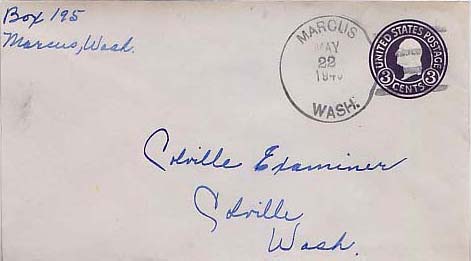 Box 195
Marcus, Wash.
MARCUS
MAY
22
WASH.
UNITED STATES POSTAGE
3 CENTS 3
Colville Examiner
Colville,
Wash.